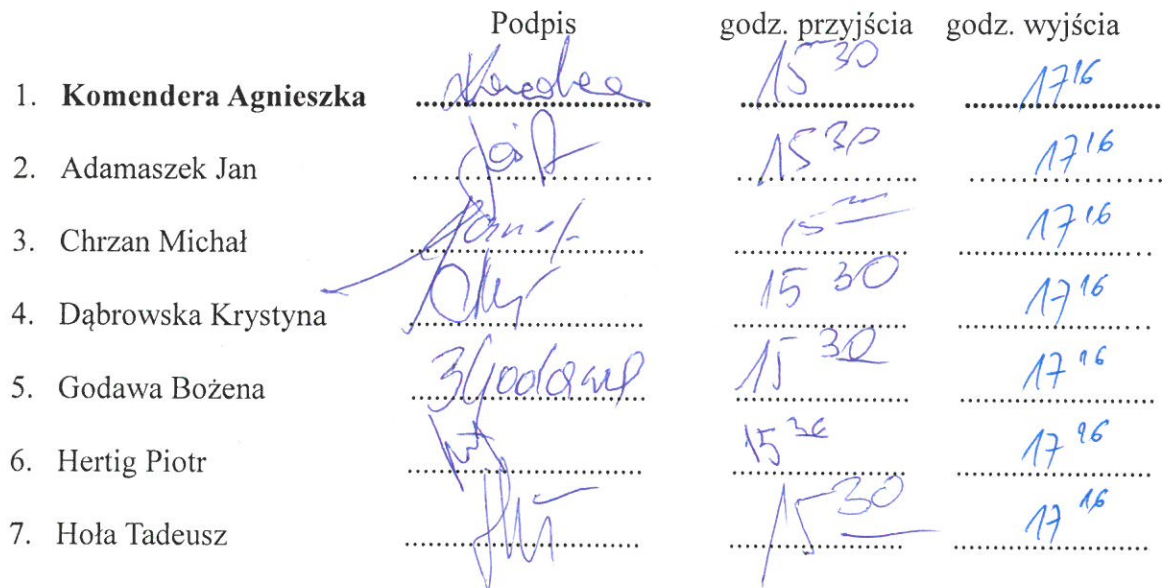 Podpis godz. przyjścia godz. wyjścia
1. Komendera Agnieszka 15 30 17 16
2. Adamaszek Jan 15 30 17 16
3. Chrzan Michał 15 17 16
4. Dąbrowska Krystyna 15 30 17 16
5. Godawa Bożena BGodawa 15 30 17 16
6. Hertig Piotr 15 30 17 16
7. Hoła Tadeusz 15 30 17 16